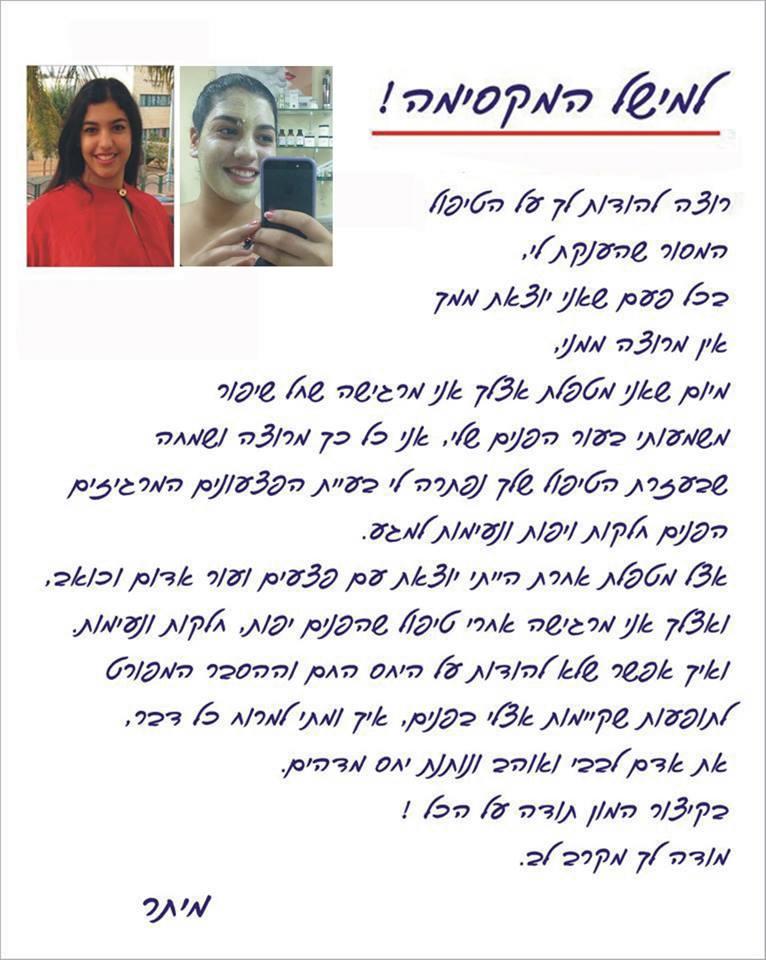 למישל המקסימה!
רוצה להודות לך על הטיפול
המסור שהענקת לי,
בכל פעם שאני יוצאת ממך
אין מרוצה ממני,
מיום שאני מטפלת אצלך אני מרגישה שחל שיפור
משמעותי בעור הפנים שלי, אני כל כך מרוצה ושמחה
שבעזרת הטיפול שלך נפתרה לי בעיית הפצעונים המרגיזים
הפנים חלקות ויפות ונעימות למגע.
אצל מטפלת אחרת הייתי יוצאת עם פצעים ועור אדום וכואב,
ואצלך אני מרגישה אחרי טיפול שהפנים יפות, חלקות ונעימות.
ואיך אפשר שלא להודות על היחס החם וההסבר המפורט
לתופעות שקיימות אצלי בפנים, איך ומתי למרוח כל דבר,
את אדם לבבי ואוהב ונותנת יחס מדהים.
בקיצור המון תודה על הכל !
מודה לך מקרב לב.
מיתר